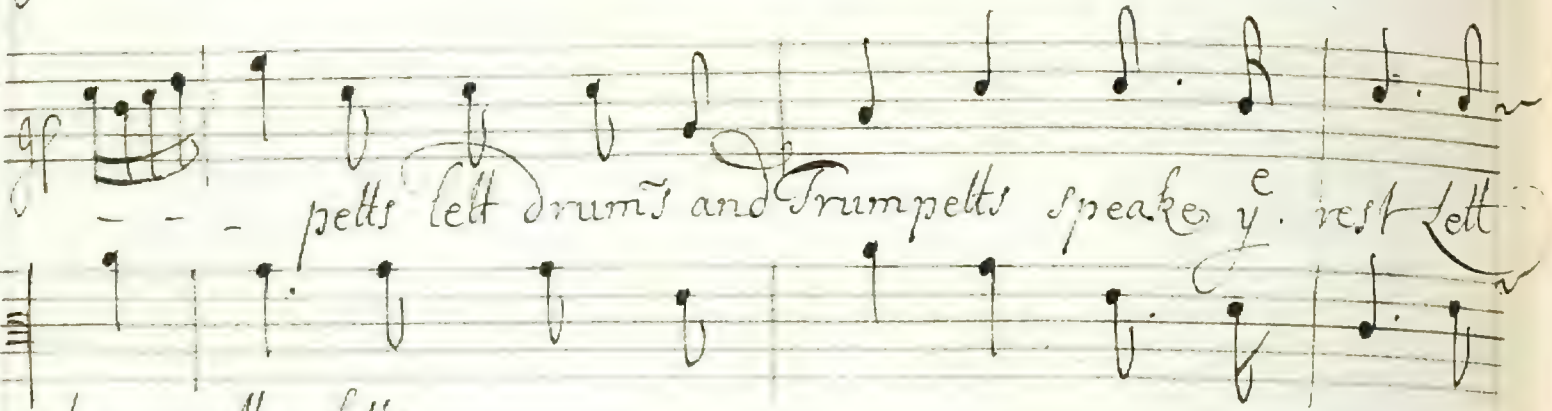 - - - petts lett drum̃s and Trumpetts speake yᵉ. rest Lett